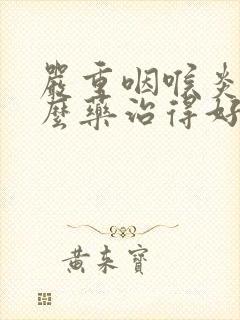 嚴重咽喉炎
麼藥治得好
黃來寶